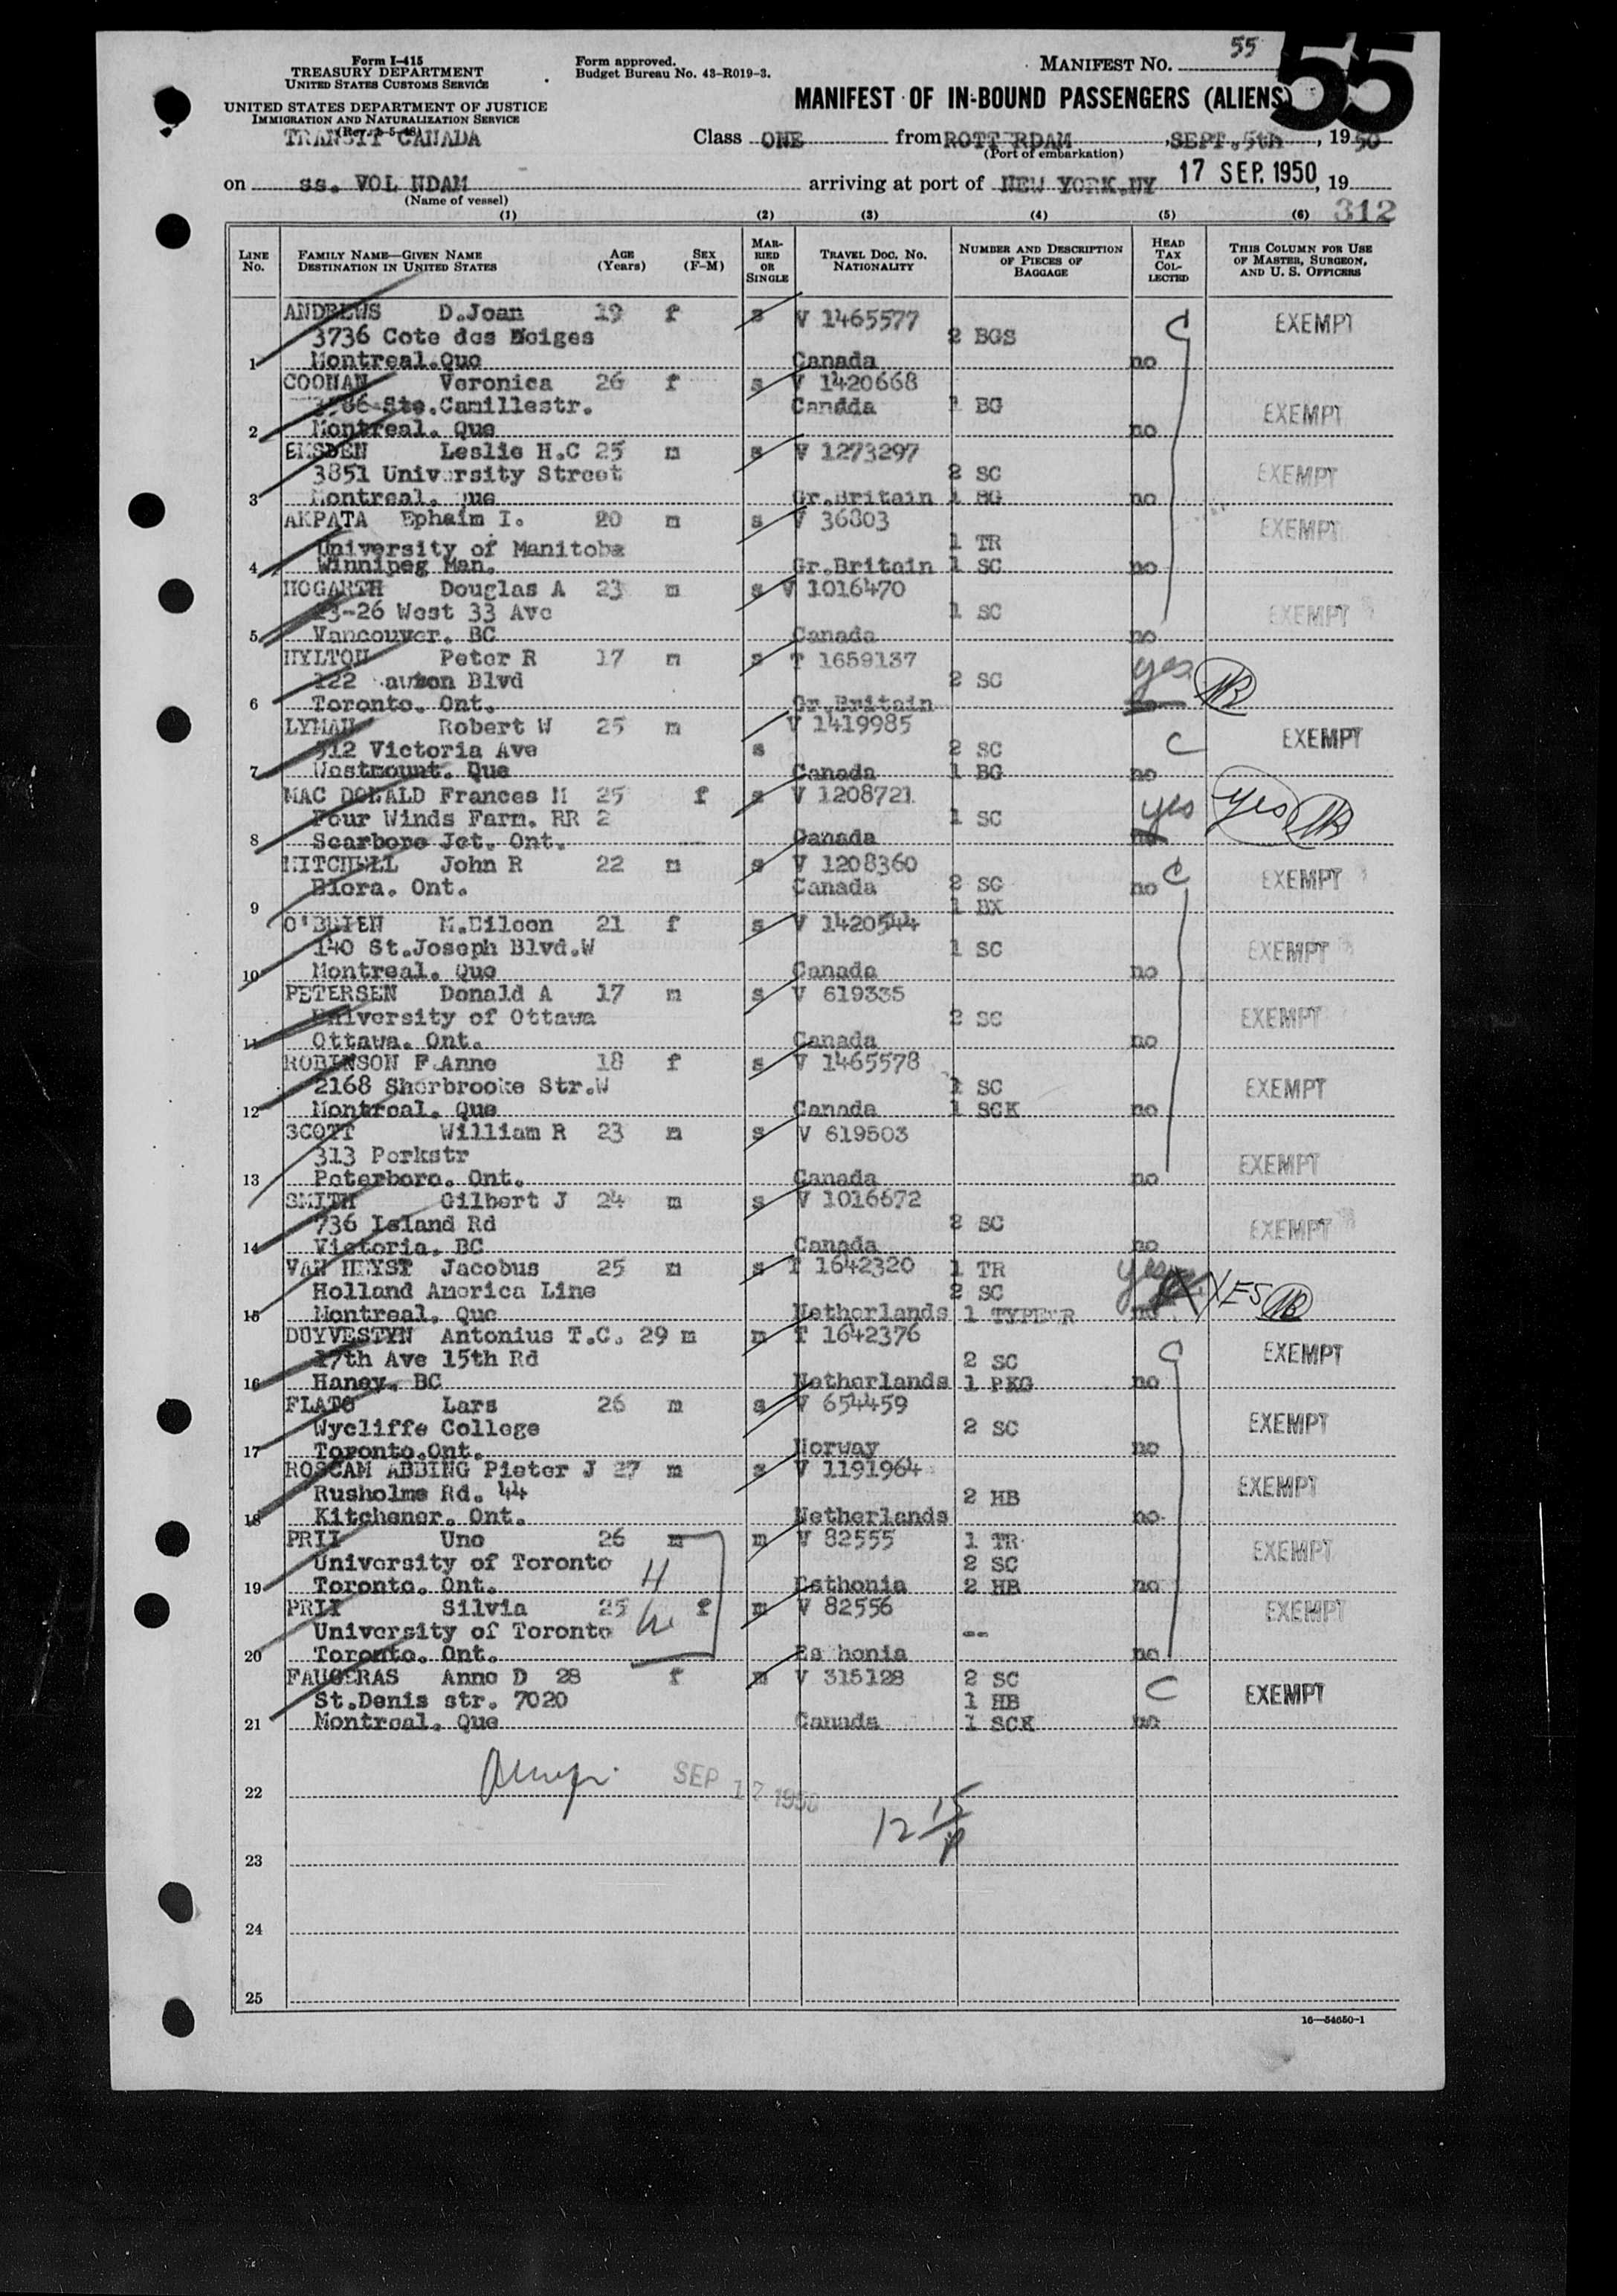 Form I-415
TREASURY DEPARTMENT
UNITED STATES CUSTOMS SERVICE
UNITED STATES DEPARTMENT OF JUSTICE
IMMIGRATION AND NATURALIZATION SERVICE
TRANSIT CANADA
Form approved.
Budget Bureau No. 43-R019-3.
MANIFEST NO. 55
55
MANIFEST OF IN-BOUND PASSENGERS (ALIENS)
Class ONE from ROTT RDAM, SEPT. 5th, 1950
(Port of embarkation)
on ss. VOL NDAM arriving at port of NEW YORK.NY 17 SEP. 1950, 19
(Name of vessel)
(1) (2) (3) (4) (5) (6) 312
LINE No. FAMILY NAME—GIVEN NAME DESTINATION IN UNITED STATES AGE (Years) SEX (F-M) MARRIED OR SINGLE TRAVEL DOC. NO. NATIONALITY NUMBER AND DESCRIPTION OF PIECES OF BAGGAGE HEAD TAX COLLECTED THIS COLUMN FOR USE OF MASTER, SURGEON, AND U. S. OFFICERS
ANDREWS D.Joan 19 f s V 1465577 C EXEMPT
3736 Cote des Neiges 2 BGS
1 Montreal.Que Canada no
COONAN Veronica 26 f s V 1420668
Ste.Camillestr. Canada 1 BG EXEMPT
2 Montreal. Que no
EMSDEN Leslie H.C 25 m s V 1273297
3851 Univ rsity Street 2 SC EXEMPT
3 Montreal. Que Gr.Britain 1 BG no
AKPATA Ephaim I. 20 m s V 36803 EXEMPT
University of Manitoba 1 TR
4 Winnipeg Man. Gr.Britain 1 SC no
HOGARTH Douglas A 23 m s V 1016470
23-26 West 33 Ave 1 SC EXEMPT
5 Vancouver. BC Canada no
HYLTON Peter R 17 m s T 1659137 yes
122 Blvd 2 SC
6 Toronto. Ont. Gr.Britain
LYMAN Robert W 25 m V 1419985
512 Victoria Ave s 2 SC C EXEMPT
7 Westmount. Que Canada 1 BG no
MAC DONALD Frances M 25 f s V 1208721 yes yes
Four Winds Farm. RR 2 1 SC
8 Scarboro Jct. Ont. Canada no
MITCHELL John R 22 m s V 1208360 C EXEMPT
Elora. Ont. Canada 2 SC no
9 1 BX
O'BRIEN M.Eileen 21 f s V 1420544
140 St.Joseph Blvd.W 1 SC EXEMPT
10 Montreal. Que Canada no
PETERSEN Donald A 17 m s V 619335
University of Ottawa 2 SC EXEMPT
11 Ottawa. Ont. Canada no
ROBINSON F.Anne 18 f s V 1465578
2168 Sherbrooke Str.W 1 SC EXEMPT
12 Montreal. Que Canada 1 SCK no
SCOTT William R 23 m s V 619503
313 Parkstr EXEMPT
13 Peterboro. Ont. Canada no
SMITH Gilbert J 24 m s V 1016672
736 Island Rd 2 SC EXEMPT
14 Victoria. BC Canada no
VAN HEYST Jacobus 25 m s T 1642320 1 TR yes
Holland America Line 2 SC YES
15 Montreal. Que Netherlands 1 TYPEWR no
DUYVESTYN Antonius T.C. 29 m m T 1642376
17th Ave 15th Rd 2 SC C EXEMPT
16 Haney. BC Netherlands 1 PKG no
FLATO Lars 26 m s V 654459
Wycliffe College 2 SC EXEMPT
17 Toronto.Ont. Norway no
ROSCAM ABBING Pieter J 27 m s V 1191964
Rusholme Rd. 44 2 HB EXEMPT
18 Kitchener. Ont. Netherlands no
PRII Uno 26 m m V 82555 1 TR
University of Toronto H 2 SC EXEMPT
19 Toronto. Ont. Esthonia 2 HB no
PRII Silvia 25 f m V 82556 EXEMPT
University of Toronto W --
20 Toronto. Ont. Es honia no
FAUGERAS Anne D 28 f m V 315128 2 SC
St.Denis str. 7020 1 HB C EXEMPT
21 Montreal. Que Canada 1 SCK no
22 SEP 17 1950
12 15
23
24
25
16—54650-1